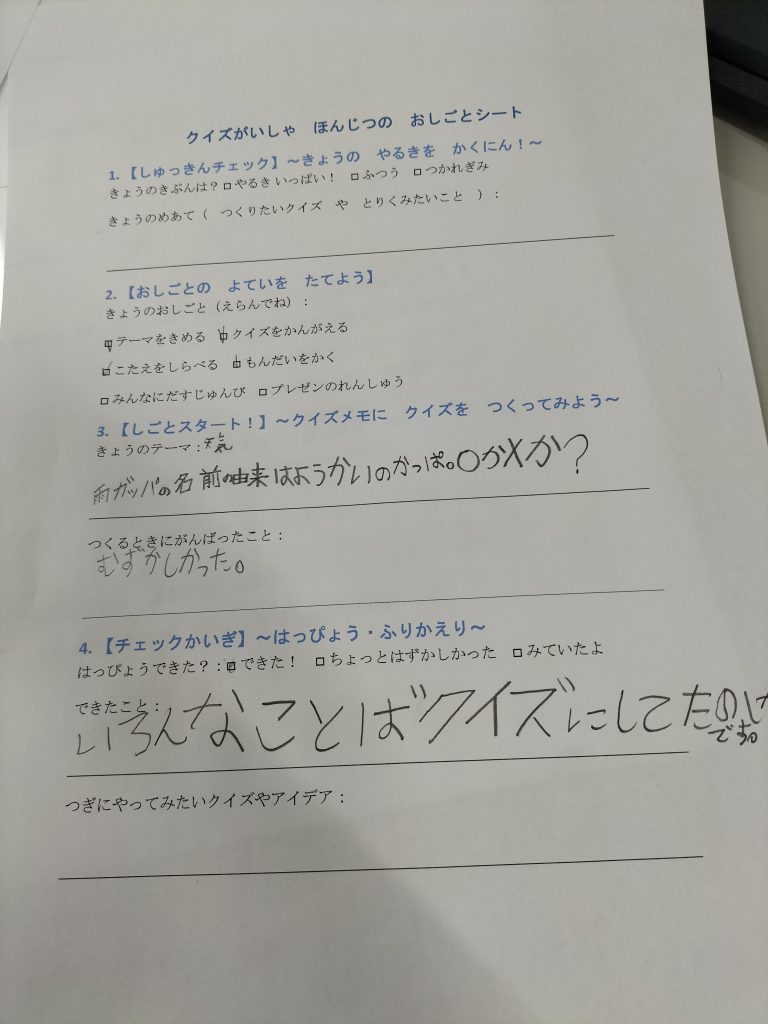 クイズがいしゃ　ほんじつの　おしごとシート
1. 【しゅっきんチェック】～きょうの　やるきを　かくにん！～
きょうのきぶんは？□やるき いっぱい！　□ふつう　□つかれぎみ
きょうのめあて（　つくりたいクイズ　や　とりくみたいこと　）：
2. 【おしごとの　よていを　たてよう】
きょうのおしごと（えらんでね）：
☑テーマをきめる　☑クイズをかんがえる
☑こたえをしらべる　☑もんだいをかく
□みんなにだすじゅんび　□プレゼンのれんしゅう
3. 【しごとスタート！】～クイズメモに　クイズを　つくってみよう～
きょうのテーマ：天気
雨ガッパの名前の由来はようかいのかっぱ。〇か✕か？
つくるときにがんばったこと：
むずかしかった。
4. 【チェックかいぎ】～はっぴょう・ふりかえり～
はっぴょうできた？：☑できた！　□ちょっとはずかしかった　□みていたよ
できたこと：
いろんなことばクイズにしてたのし
です。
つぎにやってみたいクイズやアイデア：